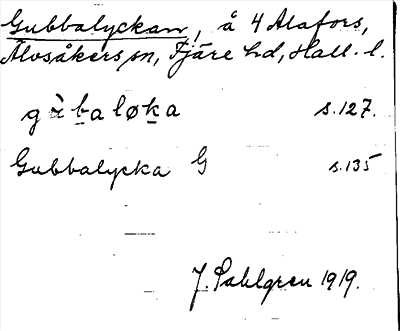 Gubbalyckan, å 4 Alafors,
Älvsåkers sn, Fjäre hd, Hall. l.
gùbaløka s.127.
Gubbalycka G s.135
J. Pahlgren 1919.